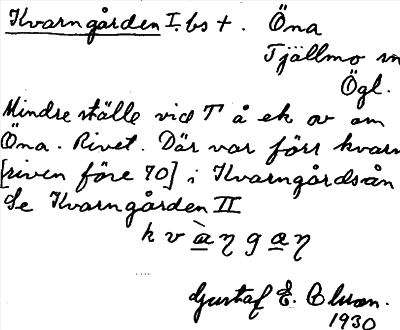 Kvarngården I. bs +. Öna
Tjällmo sn
Ögl.
Mindre ställe vid T å ek ov om
Öna. Rivet. Där var förr kvarn
[riven före 70] i Kvarngårdsån
Se Kvarngården II
k v à̲ η g a̲ η
Gustaf E. Olsson.
1930